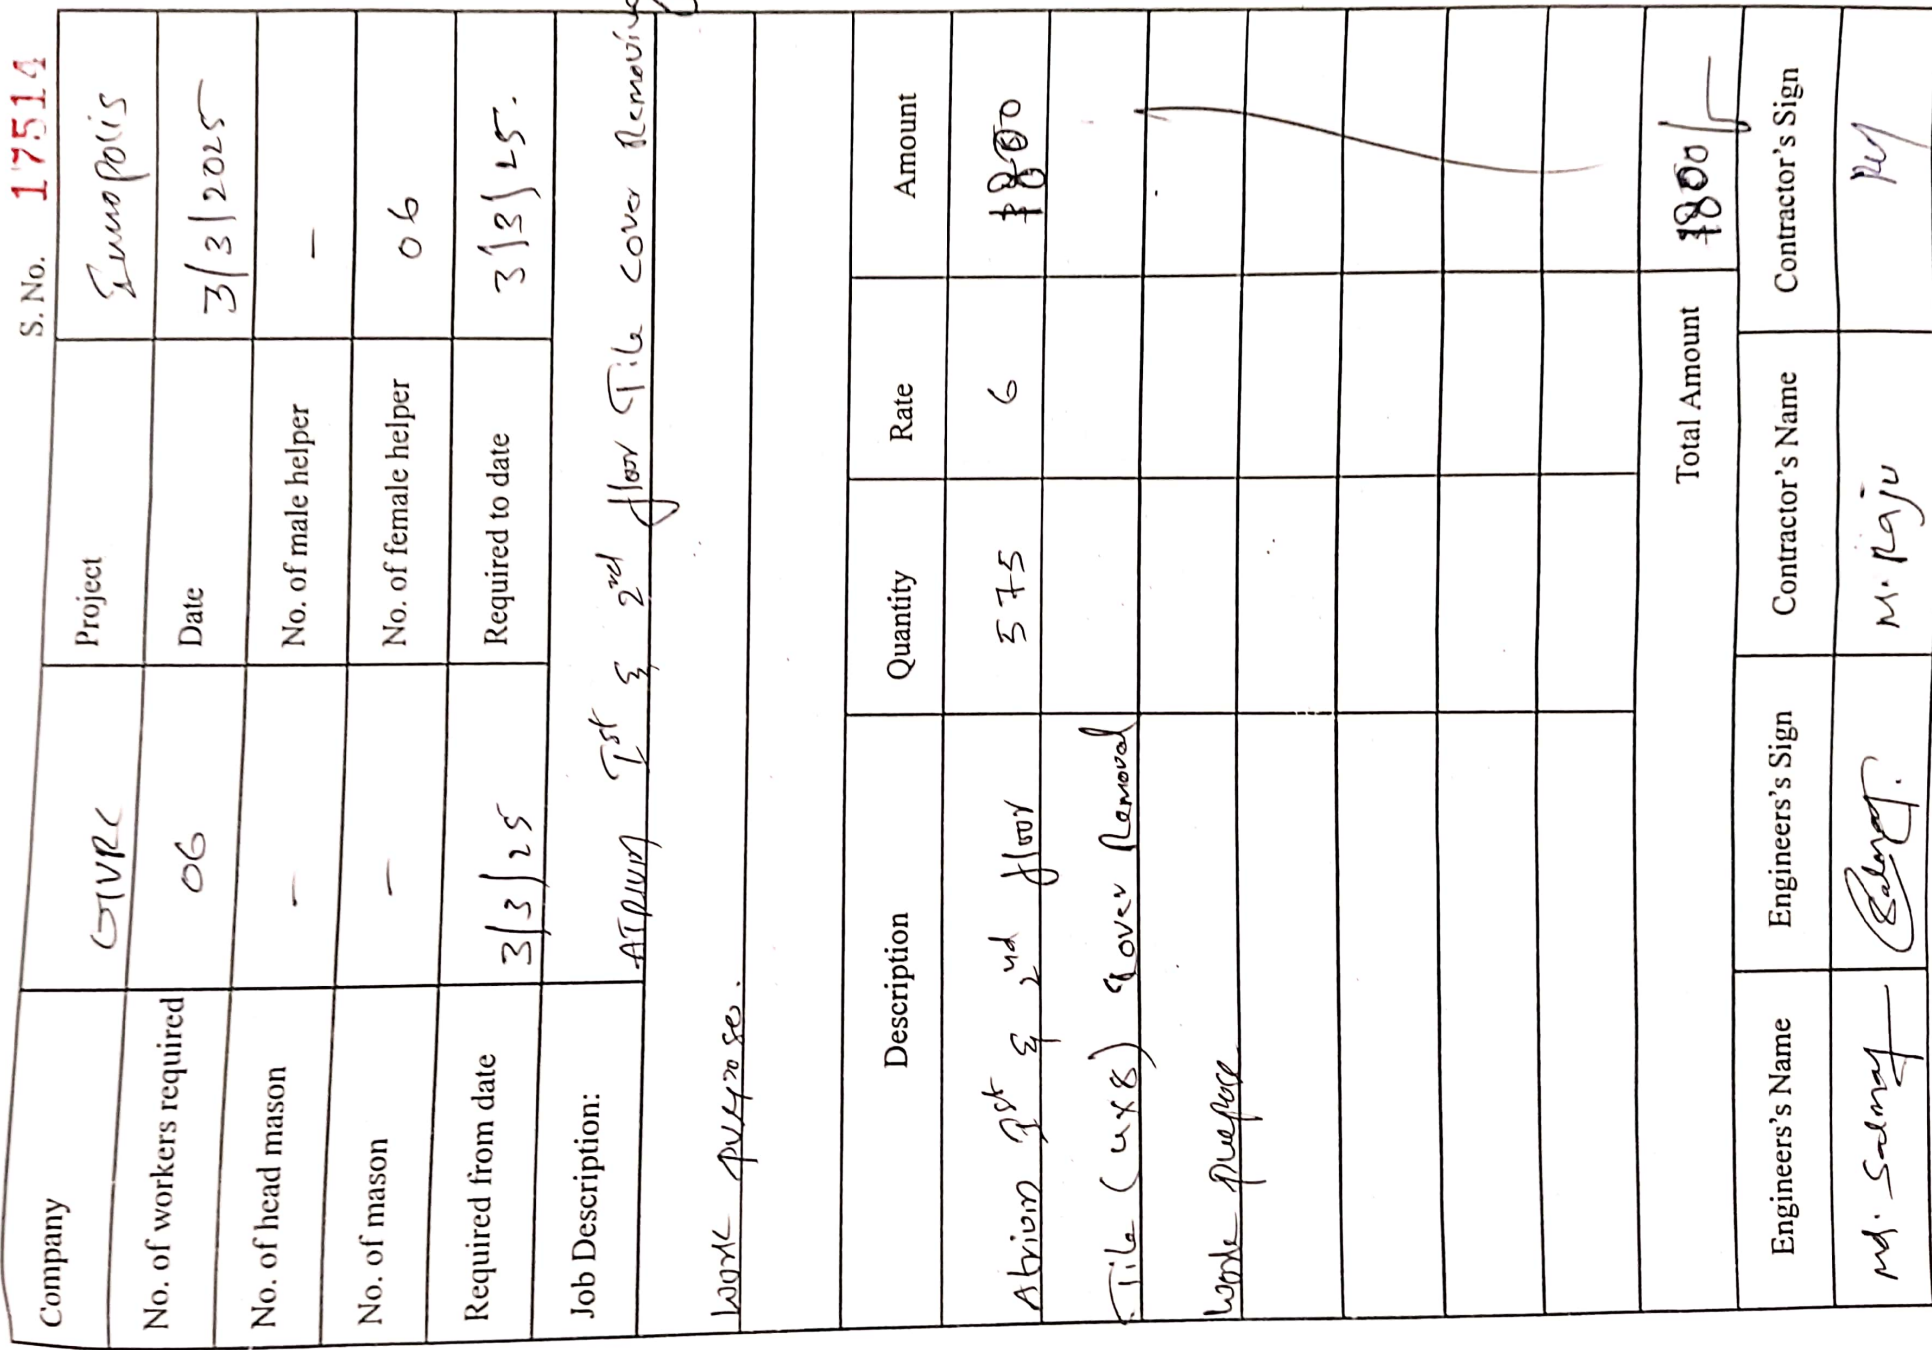 S. No. 17514
Company GIVRC Project Innopolis
No. of workers required 06 Date 3/3/2025
No. of head mason - No. of male helper -
No. of mason - No. of female helper 06
Required from date 3/3/25 Required to date 3/3/25.
Job Description: ATRIUM Ist & 2nd floor Tile cover Removing
work purpose.
Description Quantity Rate Amount
Atrium Ist & 2nd floor 575 6 1800
Tile (4x8) cover Removal
work purpose.
Total Amount 1800/-
Engineers's Name Engineers's Sign Contractor's Name Contractor's Sign
Md. Salman M. Raju